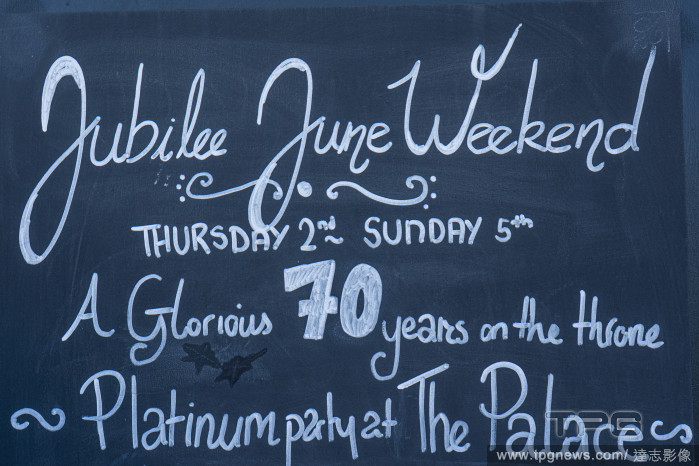 Jubilee June Weekend
THURSDAY 2nd ~ SUNDAY 5th
A Glorious 70 years on the throne
~ Platinum party at The Palace ~
TPG
www.tpgnews.com/ 達志影像